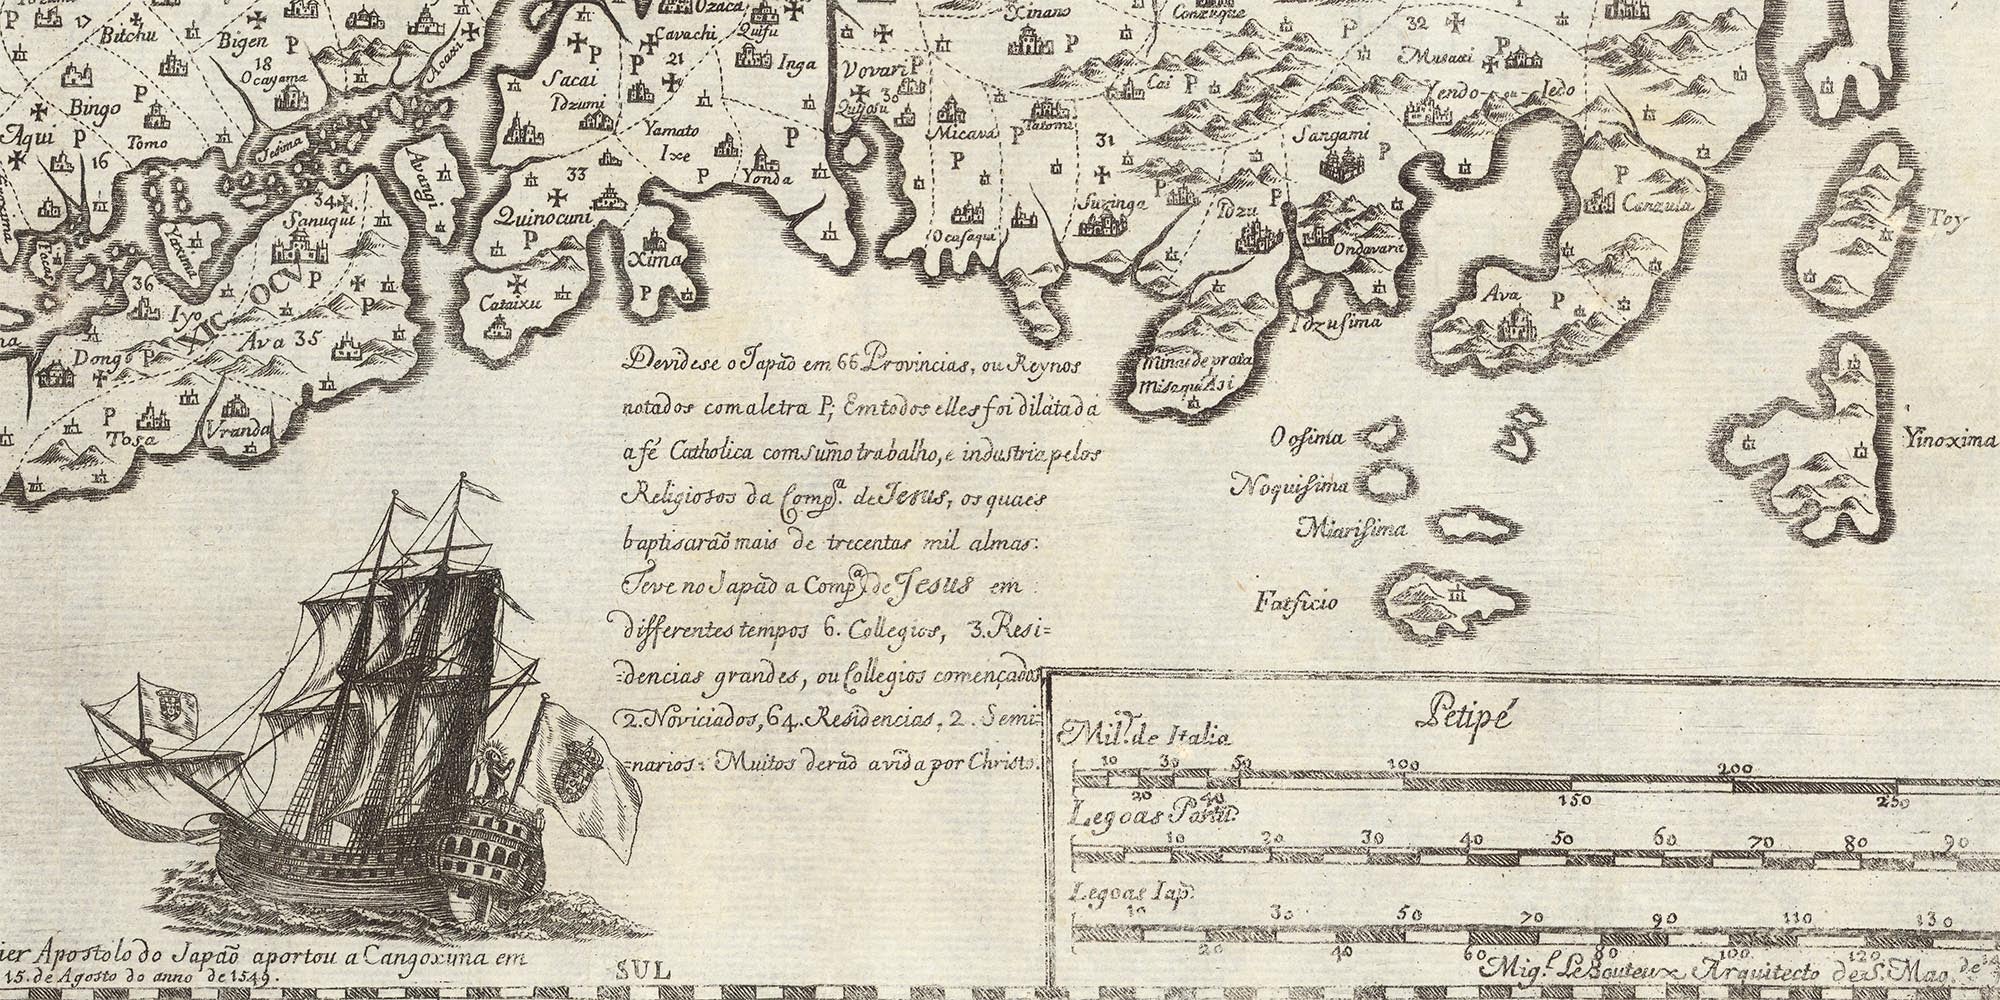 Ozaca
Xinano
Conzuque
17
Bitchu
Bigen
P
18
Ocayama
Acaxi
P
Cavachi
Quifu
21
Inga
P
Sacai
Idzumi
Vovari
P
30
P
Cai
P
32
Musaxi
Yendo-ou-Iedo
Bingo
P
Aqui
P
Tomo
16
P
Iesima
Avangi
Yamato
Ixe
P
P
Yonda
Micava
P
P
31
Sangami
P
P
P
Canzula
33
34
Sanuqui
P
Quinocuni
P
Xima
P
Ocasaqui
P
Surunga
P
Idzu
P
Ondavara
Toy
36
Iyo
XICOCV
Ava 35
P
Cataixu
Idzusima
Ava
P
Dongo
P
Tosa
Vranda
Minas de prata
Misaqui Asi
Devidese o Japão em 66 Provincias, ou Reynos
notados com a letra P; Em todos elles foi dilatada
a fé Catholica com sumo trabalho, e industria pelos
Religiosos da Compª. de Jesus, os quaes
baptisarão mais de trecentas mil almas:
Teve no Japão a Compª de Jesus em
differentes tempos 6. Collegios, 3. Resi=
=dencias grandes, ou Collegios començados
2. Noviciados, 64. Residencias, 2. Semi=
=narios: Muitos derão a vida por Christo.
Oosima
Noquisima
Miarisima
Fatsicio
Yinoxima
Petipé
Mil.s de Italia
10 30 50 100 200
20 40 150 250
Legoas Portu.
10 20 30 40 50 60 70 80 90
Legoas Iap.
10 30 50 70 90 110 130
20 40 60 80 100 120
Mig.l LeBouteux Arquitecto de S. Mag.de
ier Apostolo do Japão aportou a Cangoxuma em
15. de Agosto do anno de 1549.
SUL